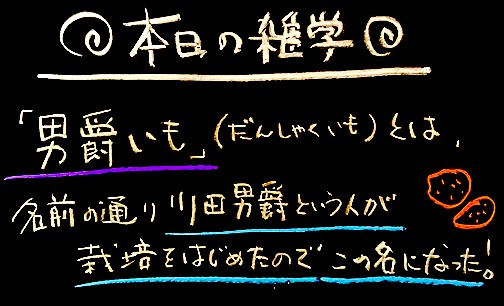 本日の雑学
「男爵いも」(だんしゃくいも)とは、
名前の通り川田男爵という人が
栽培をはじめたのでこの名になった!